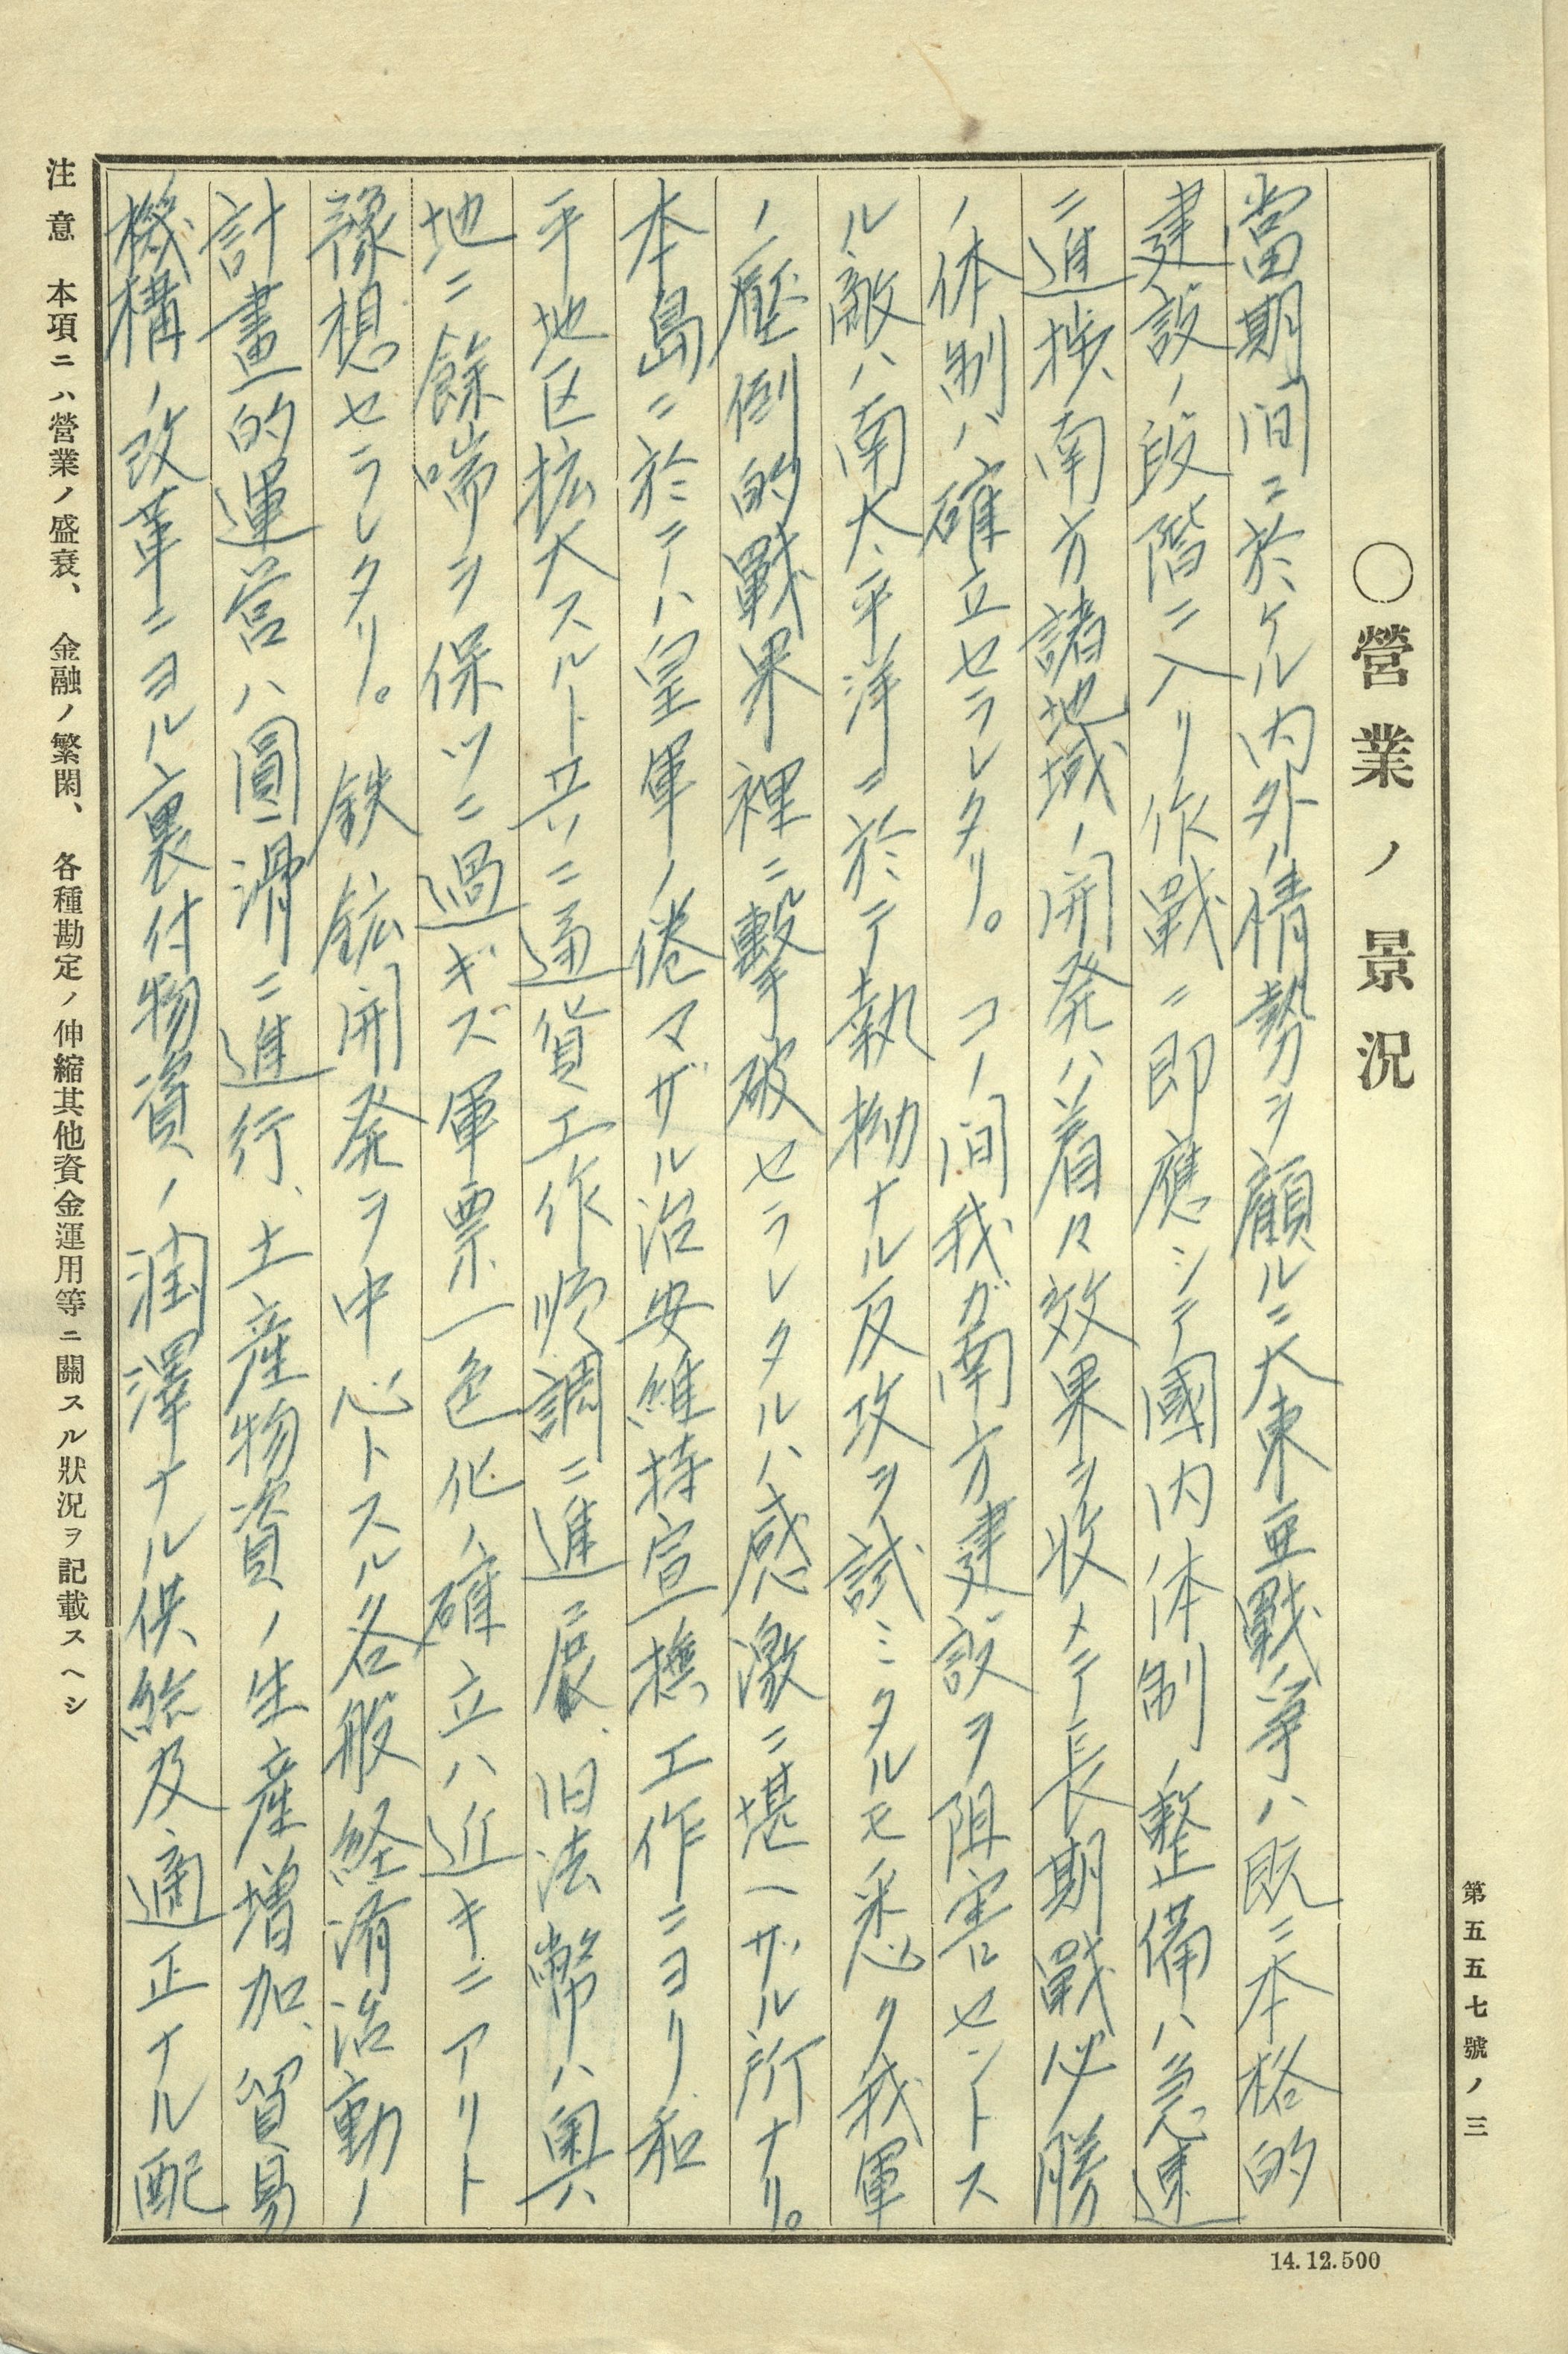 第五五七號ノ三
○營業ノ景況
當期間ニ於ケル内外ノ情勢ヲ顧ルニ大東亜戰爭ハ既ニ本格的
建設ノ段階ニ入リ作戰ニ即應シテ國内体制ノ整備ハ急速
ニ進捗南方諸地域ノ開発ハ着々效果ヲ收メテ長期戰必勝
ノ体制ハ確立セラレタリ。コノ間我ガ南方建設ヲ阻害セントス
ル敵ハ南太平洋ニ於テ執拗ナル反攻ヲ試ミタルモ悉ク我軍
ノ壓倒的戰果裡ニ擊破セラレタルハ感激ニ堪ヘザル所ナリ。
本島ニ於テハ皇軍ノ倦マザル治安維持宣撫工作ニヨリ和
平地区拡大スルト共ニ通貨工作順調ニ進展、旧法幣ハ奥
地ニ餘喘ヲ保ツニ過ギズ軍票一色化ノ確立ハ近キニアリト
豫想セラレタリ。鉄鉱開発ヲ中心トスル各般経済活動ノ
計畫的運営ハ圓滑ニ進行、土産物資ノ生産増加、貿易
機構ノ改革ニヨル裏付物資ノ潤澤ナル供給及適正ナル配
注意 本項ニハ營業ノ盛衰、金融ノ繁閑、各種勘定ノ伸縮其他資金運用等ニ關スル狀況ヲ記載スヘシ
14.12.500